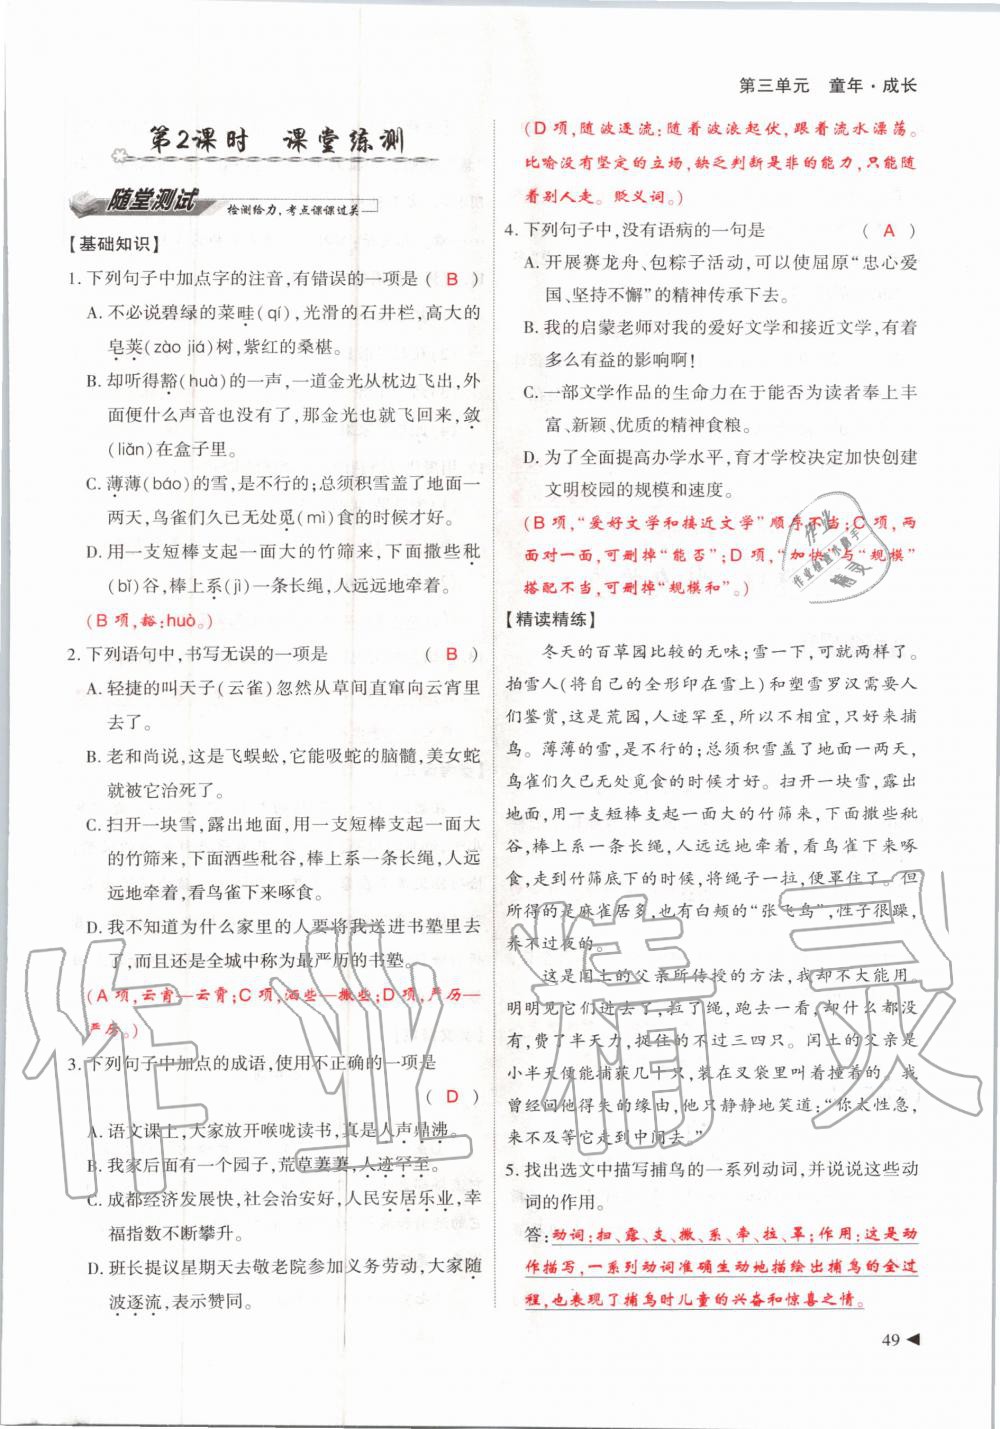 第三单元　童年·成长
第2课时　课堂练测
随堂测试 检测给力,考点课课过关
【基础知识】
1. 下列句子中加点字的注音,有错误的一项是 ( B )
A. 不必说碧绿的菜畦(qí),光滑的石井栏,高大的
皂荚(zào jiá)树,紫红的桑椹。
B. 却听得豁(huà)的一声,一道金光从枕边飞出,外
面便什么声音也没有了,那金光也就飞回来,敛
(liǎn)在盒子里。
C. 薄薄(báo)的雪,是不行的;总须积雪盖了地面一
两天,鸟雀们久已无处觅(mì)食的时候才好。
D. 用一支短棒支起一面大的竹筛来,下面撒些秕
(bǐ)谷,棒上系(jì)一条长绳,人远远地牵着。
(B 项,豁:huò。)
2. 下列语句中,书写无误的一项是 ( B )
A. 轻捷的叫天子(云雀)忽然从草间直窜向云宵里
去了。
B. 老和尚说,这是飞蜈蚣,它能吸蛇的脑髓,美女蛇
就被它治死了。
C. 扫开一块雪,露出地面,用一支短棒支起一面大
的竹筛来,下面洒些秕谷,棒上系一条长绳,人远
远地牵着,看鸟雀下来啄食。
D. 我不知道为什么家里的人要将我送进书塾里去
了,而且还是全城中称为最严历的书塾。
(A 项,云宵—云霄;C 项,洒些—撒些;D 项,严历—
严厉。)
3. 下列句子中加点的成语,使用不正确的一项是
( D )
A. 语文课上,大家放开喉咙读书,真是人声鼎沸。
B. 我家后面有一个园子,荒草萋萋,人迹罕至。
C. 成都经济发展快,社会治安好,人民安居乐业,幸
福指数不断攀升。
D. 班长提议星期天去敬老院参加义务劳动,大家随
波逐流,表示赞同。
(D 项,随波逐流:随着波浪起伏,跟着流水漂荡。
比喻没有坚定的立场,缺乏判断是非的能力,只能随
着别人走。贬义词。)
4. 下列句子中,没有语病的一句是 ( A )
A. 开展赛龙舟、包粽子活动,可以使屈原“忠心爱
国、坚持不懈”的精神传承下去。
B. 我的启蒙老师对我的爱好文学和接近文学,有着
多么有益的影响啊!
C. 一部文学作品的生命力在于能否为读者奉上丰
富、新颖、优质的精神食粮。
D. 为了全面提高办学水平,育才学校决定加快创建
文明校园的规模和速度。
(B 项,“爱好文学和接近文学”顺序不当;C 项,两
面对一面,可删掉“能否”;D 项,“加快”与“规模”
搭配不当,可删掉“规模和”。)
【精读精练】
冬天的百草园比较的无味;雪一下,可就两样了。
拍雪人(将自己的全形印在雪上)和塑雪罗汉需要人
们鉴赏,这是荒园,人迹罕至,所以不相宜,只好来捕
鸟。薄薄的雪,是不行的;总须积雪盖了地面一两天,
鸟雀们久已无处觅食的时候才好。扫开一块雪,露出
地面,用一支短棒支起一面大的竹筛来,下面撒些秕
谷,棒上系一条长绳,人远远地牵着,看鸟雀下来啄
食,走到竹筛底下的时候,将绳子一拉,便罩住了。但
所得的是麻雀居多,也有白颊的“张飞鸟”,性子很躁,
养不过夜的。
这是闰土的父亲所传授的方法,我却不大能用。
明明见它们进去了,拉了绳,跑去一看,却什么都没
有,费了半天力,捉住的不过三四只。闰土的父亲是
小半天便能捕获几十只,装在叉袋里叫着撞着的。我
曾经问他得失的缘由,他只静静地笑道:“你太性急,
来不及等它走到中间去。”
5. 找出选文中描写捕鸟的一系列动词,并说说这些动
词的作用。
答:动词:扫、露、支、撒、系、牵、拉、罩;作用:这是动
作描写,一系列动词准确生动地描绘出捕鸟的全过
程,也表现了捕鸟时儿童的兴奋和惊喜之情。
49
作业精灵
作业
作业检查小助手
精灵